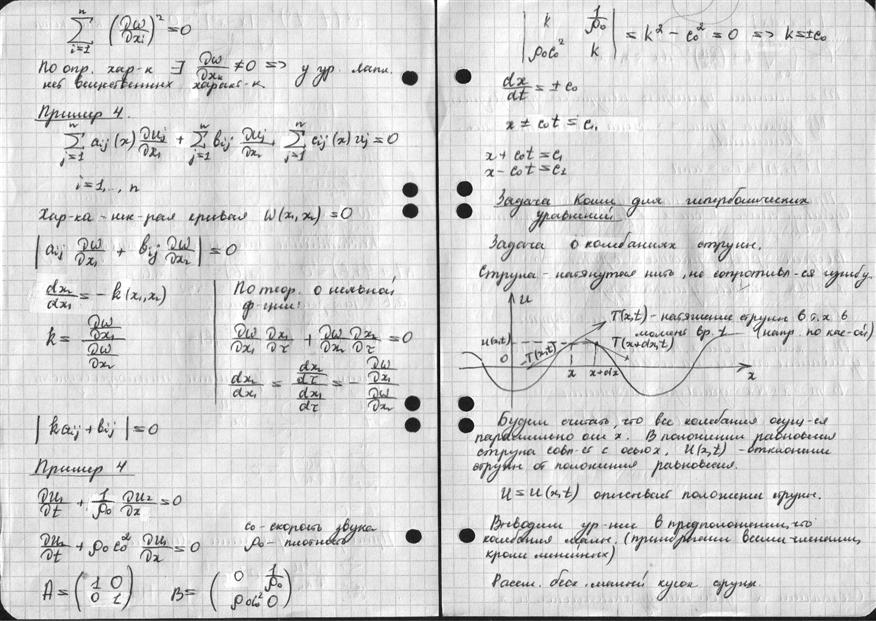 $\sum_{i=1}^{n} \left(\frac{\partial \omega}{\partial x_i}\right)^2 = 0$
По опр. хар-к ∃ $\frac{\partial \omega}{\partial x_k} \neq 0$ => у ур. лапл.
нет вещественных характ-к.
Пример 4.
$\sum_{j=1}^{n} a_{ij}(x) \frac{\partial u_j}{\partial x_1} + \sum_{j=1}^{n} b_{ij} \frac{\partial u_j}{\partial x_2} + \sum_{j=1}^{n} c_{ij}(x) u_j = 0$
i=1,.., n
Хар-ка - нек-рая кривая ω(x₁,x₂) = 0
$\left| a_{ij} \frac{\partial \omega}{\partial x_1} + b_{ij} \frac{\partial \omega}{\partial x_2} \right| = 0$
$\frac{dx_2}{dx_1} = -k(x_1,x_2)$
$k = \frac{\frac{\partial \omega}{\partial x_1}}{\frac{\partial \omega}{\partial x_2}}$
По теор. о неявной
ф-ции:
$\frac{\partial \omega}{\partial x_1} \frac{\partial x_1}{\partial \tau} + \frac{\partial \omega}{\partial x_2} \frac{\partial x_2}{\partial \tau} = 0$
$\frac{dx_2}{dx_1} = \frac{\frac{dx_2}{d\tau}}{\frac{dx_1}{d\tau}} = -\frac{\frac{\partial \omega}{\partial x_1}}{\frac{\partial \omega}{\partial x_2}}$
| k a_{ij} + b_{ij} | = 0
Пример 4
$\frac{\partial u_1}{\partial t} + \frac{1}{\rho_0} \frac{\partial u_2}{\partial x} = 0$
$\frac{\partial u_2}{\partial t} + \rho_0 c_0^2 \frac{\partial u_1}{\partial x} = 0$
c₀ - скорость звука
ρ₀ - плотность
$A = \begin{pmatrix} 1 & 0 \\ 0 & 1 \end{pmatrix}$ $B = \begin{pmatrix} 0 & \frac{1}{\rho_0} \\ \rho_0 c_0^2 & 0 \end{pmatrix}$
$\begin{vmatrix} k & \frac{1}{\rho_0} \\ \rho_0 c_0^2 & k \end{vmatrix} = k^2 - c_0^2 = 0 => k = \pm c_0$
$\frac{dx}{dt} = \pm c_0$
x ± c₀t = c₁
x + c₀t = c₁
x - c₀t = c₂
Задача Коши для гиперболических
уравнений
Задача о колебаниях струны.
Струна - натянутая нить, не сопротивл-ся изгибу.
u
T(x,t) - натяжение струны в т. x в
момент вр. t (напр. по кас-ой)
u(x,t)
T(x+dx,t)
0
-T(x,t)
x
x+dx
x
Будем считать, что все колебания осущ-ся
параллельно оси x. В положении равновесия
струна совп-ет с осью x, u(x,t) - отклонение
струны от положения равновесия.
u = u(x,t) описывает положение струны.
Выводим ур-ние в предположении, что
колебания малые. (пренебрегаем всеми членами,
кроме линейных)
Рассм. беск. малый кусок струны.